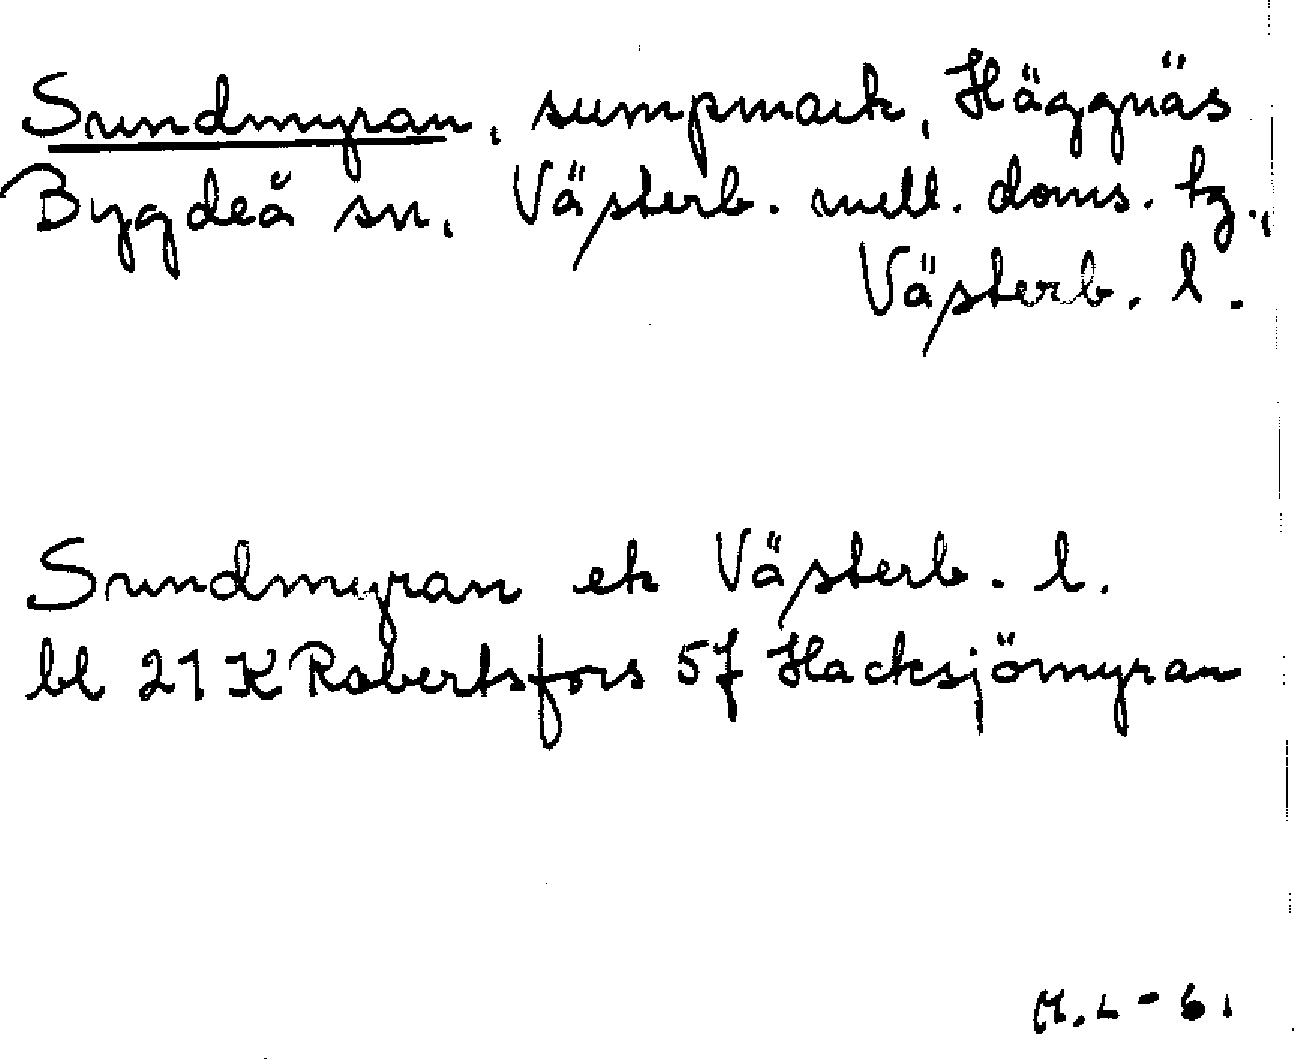 Sundmyran, sumpmark, Häggnäs
Bygdeå sn, Västerb. mell. doms. tg.,
Västerb. l.
Sundmyran ek Västerb. l.
bl 21 K Robertsfors 5f Hacksjömyran